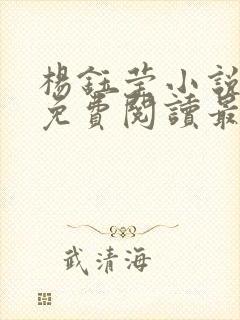 楊鈺莹小說
免費閱讀最
武清海